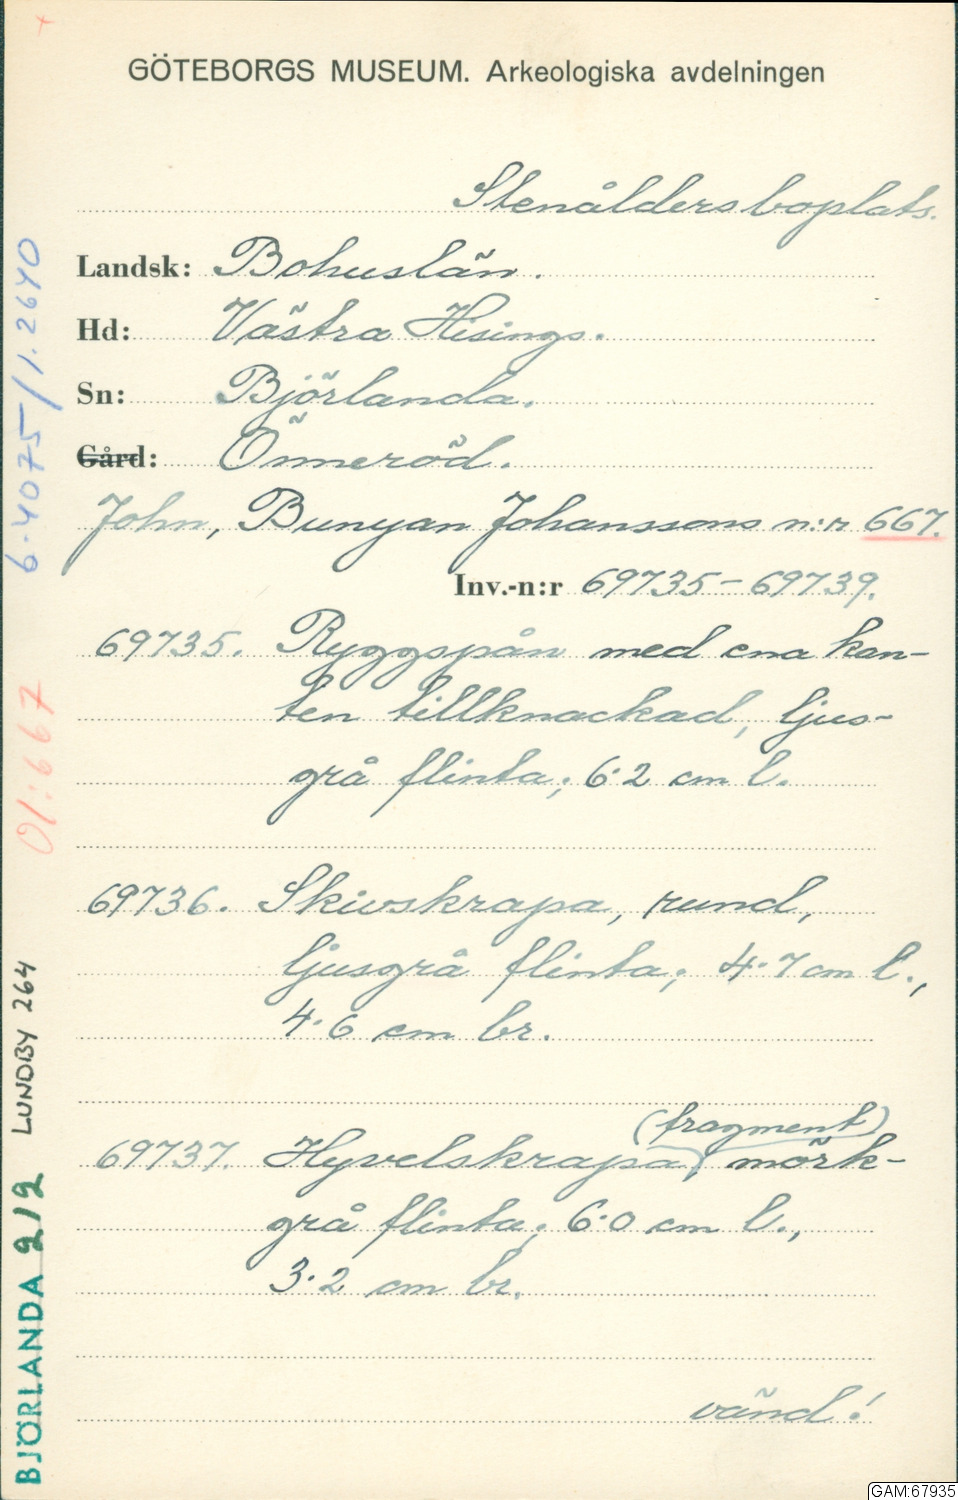 GÖTEBORGS MUSEUM. Arkeologiska avdelningen
Stenåldersboplats.
Landsk: Bohuslän.
Hd: Västra Hisings.
Sn: Björlanda.
Gård: Önneröd.
John, Bunyan Johanssons n:r 667.
Inv.-n:r 69735-69739.
69735. Ryggspån med ena kan-
ten tillknackad, ljus-
grå flinta; 6.2 cm l.
69736. Skivskrapa, rund,
ljusgrå flinta; 4.7 cm l.,
4.6 cm br.
(fragment)
69737. Hyvelskrapa, mörk-
grå flinta; 6.0 cm l.,
3.2 cm br.
vänd!
6.4075/1.2640
Ol:667
LUNDBY 264
BJÖRLANDA 212
GAM:67935